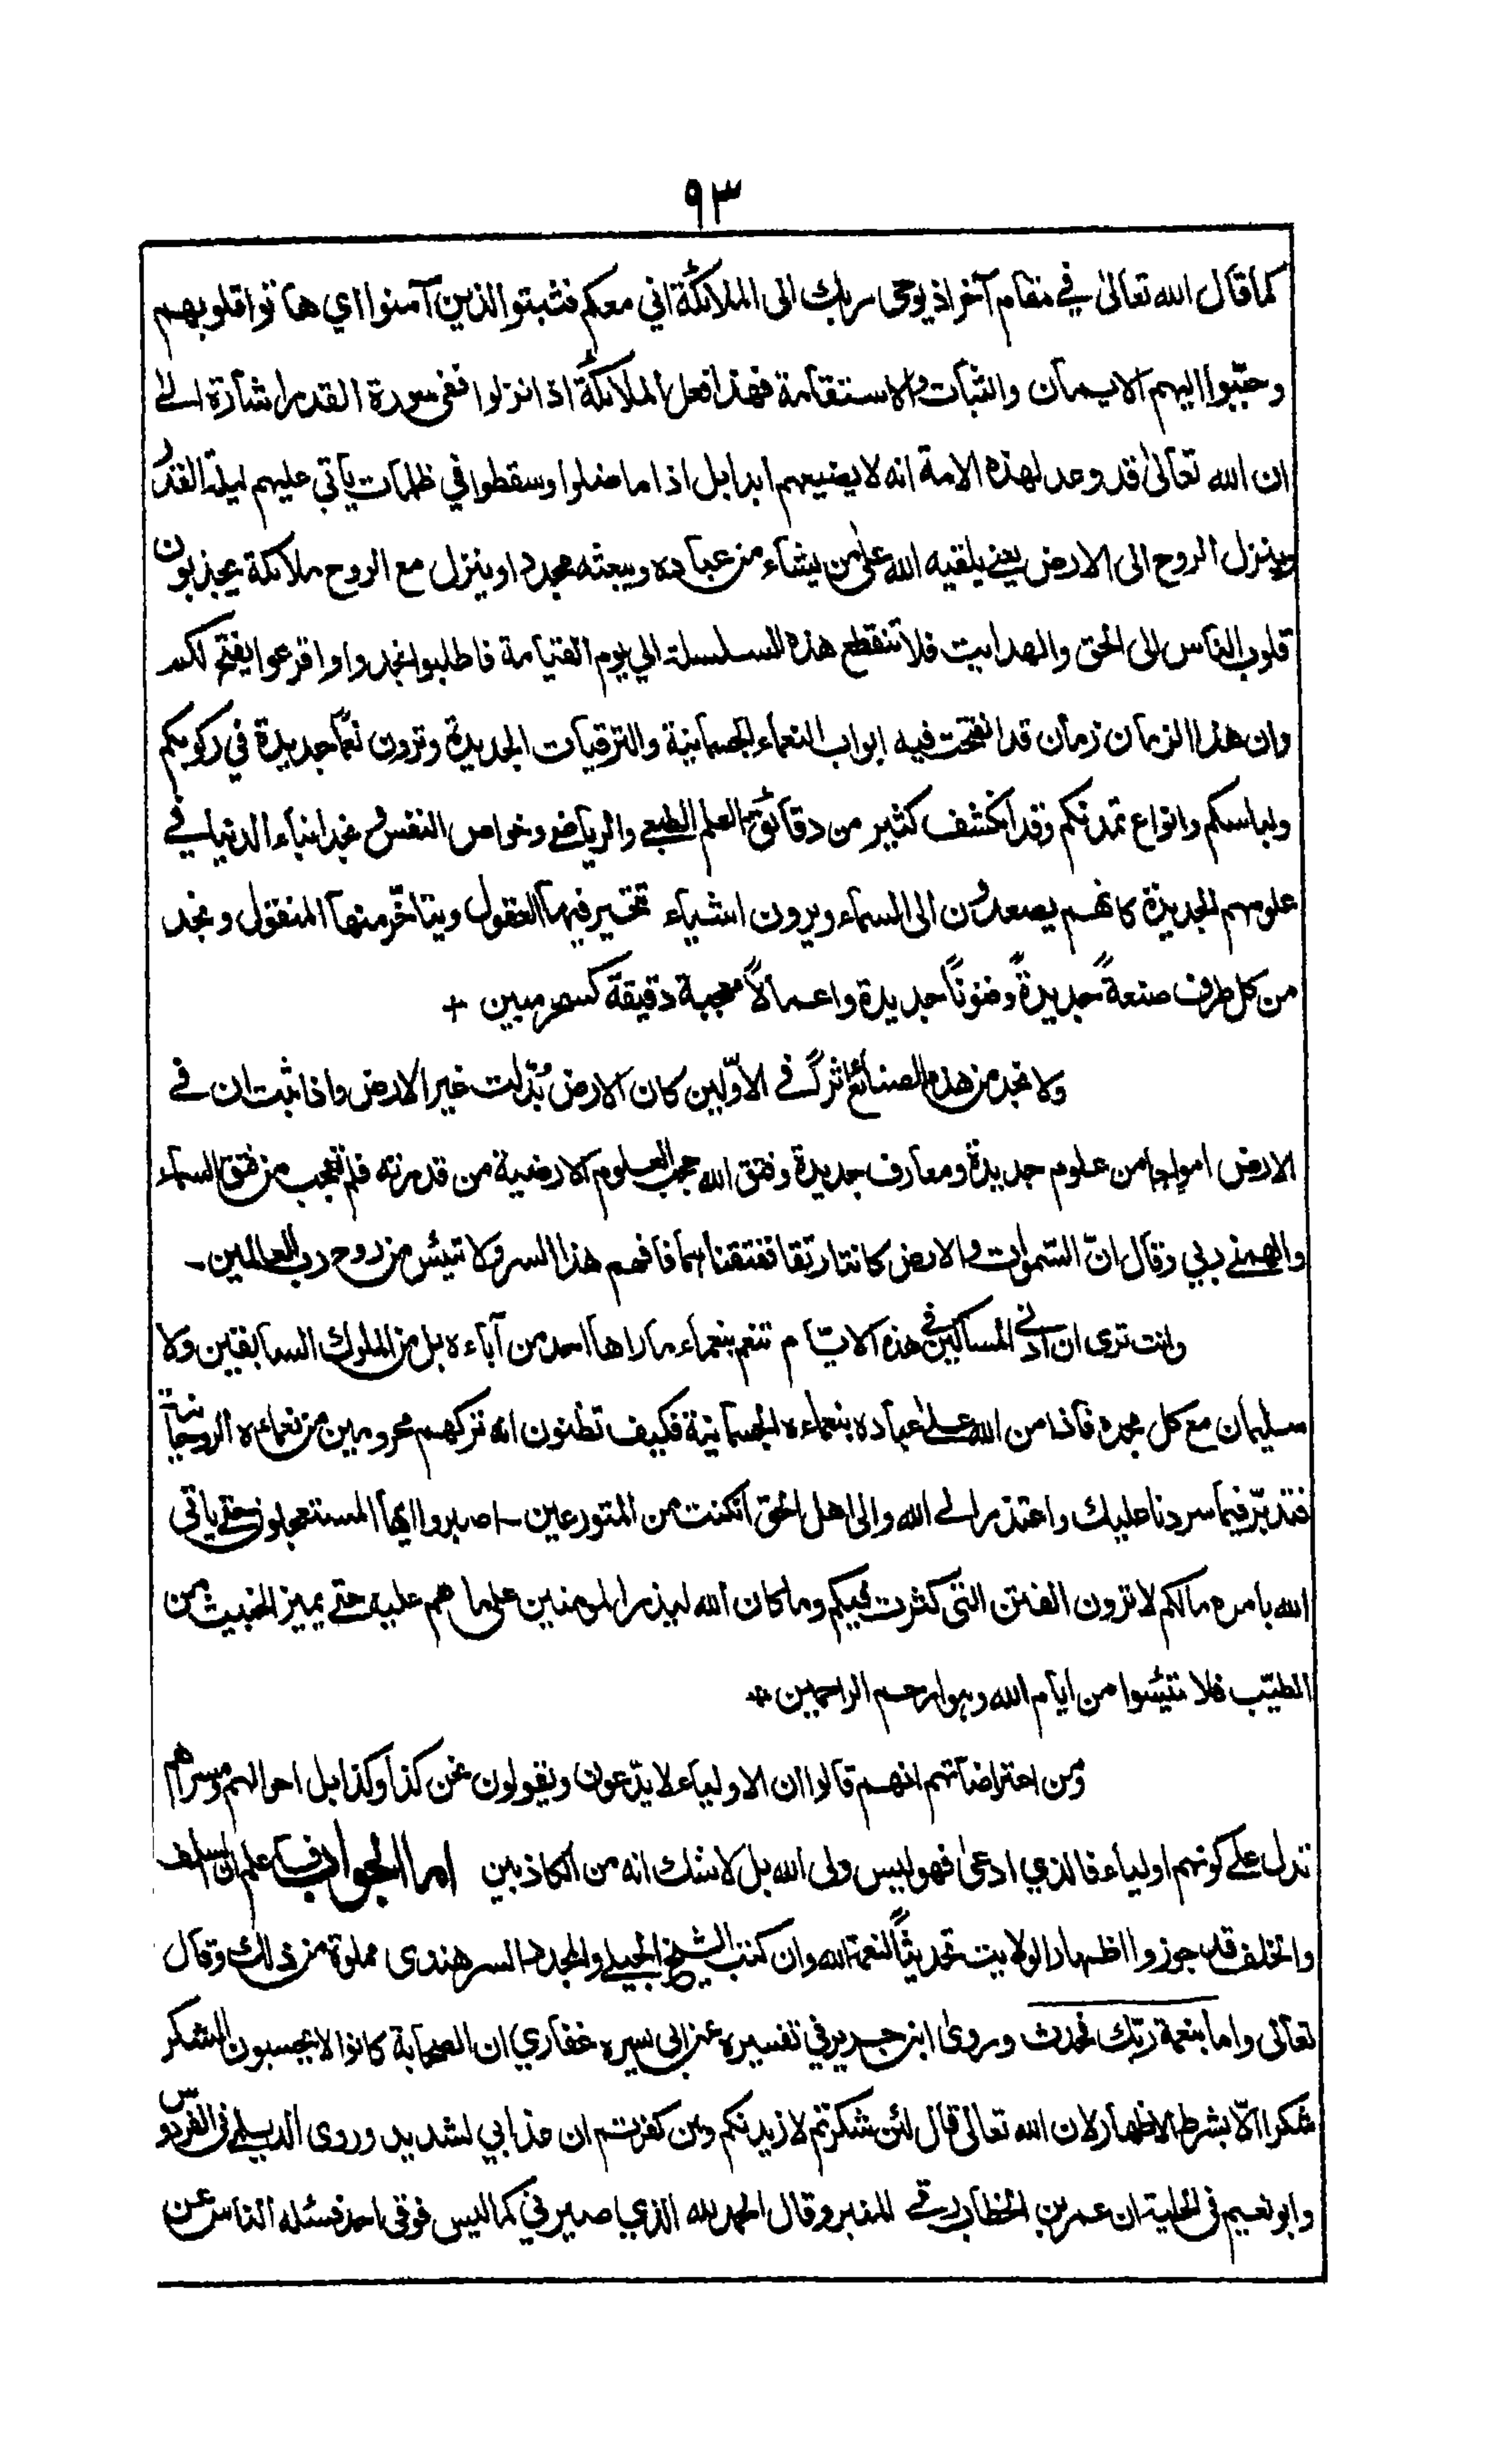 ٩٣
كما قال الله تعالىٰ في مقام آخر اذ يوحى ربك الى الملائكة اني معكم فثبتوا الذين آمنوا اي هاتوا قلوبهم
وحبّبوا اليهم الايمان والثبات والاستقامة فهذا فعل الملائكة اذا نزلوا ففى سورة القدر اشارة الےٰ
ان الله تعالىٰ قد وعد لهذه الامة انه لا يضيعهم ابدا بل اذا ما ضلوا وسقطوا في ظلمات يأتي عليهم ليلة القدر
وينزل الروح الى الارض يعنے يلقيه الله علىٰ من يشاء من عباده ويبعثه مجددا وينزل مع الروح ملائكة يجذبون
قلوب الناس الى الحق والهدايت فلا تنقطع هذه السلسلة الي يوم القيامة فاطلبوا تجدوا واقرعوا يفتح لكم
وان هذا الزمان زمان قد انفتحت فيه ابواب النعماء الجسمانية والترقيات الجديدة وترون نعمًا جديدة في ركوبكم
ولباسكم وانواع تمدنكم وقد انكشف كثير من دقائق العلم الطبعے والرياضے وخواص النفس ونجد ابناء الدنيا في
علومهم الجديدة كانهم يصعدون الى السماء ويرون اشياء تتحير فيها العقول ويتاخّر منها المنقول ونجد
من كل طرف صنعةً جديدةً وفنونًا جديدة واعمالًا معجبة دقيقة كسحر مبين +
ولا نجد من هذه الصنائع اثرًا في الاوّلين كان الارض بُدّلت غير الارض واذا ثبت ان في
الارض امواجا من علوم جديدة ومعارف جديدة وفتق الله حجب العلوم الارضية من قدرته فلم تعجب من فتق السماء
والهمنے ربي وقال انّ السّموات والارض كانتا رتقا ففتقناهما فافهم هذا السر ولا تيئس من روح رب العالمين۔
وانت ترى ان ادنى المساكين في هذه الايّام تنعم بنعماء ما راها احد من آباءه بل من الملوك السابقين ولا
سليمان مع كل مجده فاذا من الله علىٰ عباده بنعماءه الجسمانية فكيف تظنون انه تركهم محرومين من نعماءه الروحانية
فتدبّر فيما سردنا عليك واعتذر الے الله والى اهل الحق ان كنت من المتورعين۔ اصبروا ايها المستعجلون حتے ياتى
الله بامره مالكم لا ترون الفتن التى كثرت فيكم وما كان الله ليذر المومنين على ما هم عليه حتے يميز الخبيث من
الطيّب فلا تيئسوا من ايام الله وهو ارحم الراحمين *
ومن اعتراضاتهم انهم قالوا ان الاولياء لا يدّعون ويقولون نحن كذا وكذا بل احوالهم وسيرهم
تدل علے كونهم اولياء فالذي ادعىٰ فهو ليس ولى الله بل لا شك انه من الكاذبين اما الجواب فاعلم ان السلف
والخلف قد جوزوا اظهار الولايت تحديثًا لنعمة الله وان كتب الشيخ الجيلے والمجدد السرهندى مملوة من ذلك وقال
تعالى واما بنعمة ربّك فحدث وروىٰ ابن جرير في تفسيره عن ابى يسيره غفاري ان الصحابة كانوا لا يحسبون الشكر
شكرا الّا بشرط الاظهار لان الله تعالىٰ قال لئن شكرتم لازيدنكم ولئن كفرتم ان عذابي لشديد وروى الديلمے فى الفردوس
وابو نعيم فى الحلية ان عمر بن الخطاب رقے المنبر وقال الحمد لله الذي صيرني كما ليس فوقى احد فسئله الناس عن